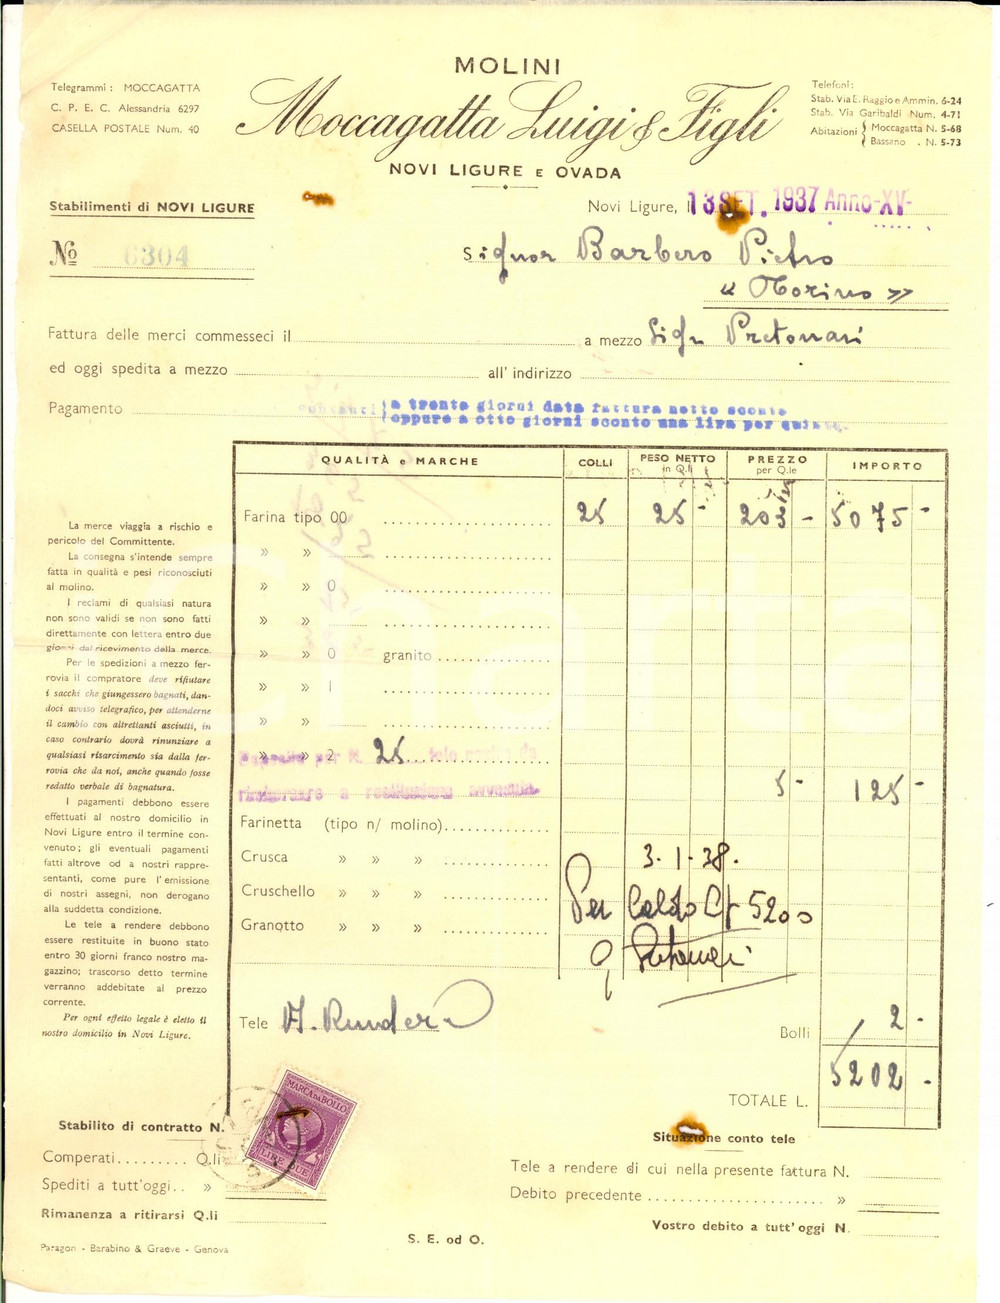 MOLINI
Moccagatta Luigi & Figli
NOVI LIGURE E OVADA
Telegrammi: MOCCAGATTA
C. P. E. C. Alessandria 6297
CASELLA POSTALE Num. 40
Telefoni:
Stab. Via E. Raggio e Ammin. 6-24
Stab. Via Garibaldi Num. 4-71
Abitazioni { Moccagatta N. 5-68
Bassano . N. 5-73
Stabilimenti di NOVI LIGURE
Novi Ligure, li 13 SET. 1937 Anno-XV-
No 6304
Signor Barbero Pietro
« Torino »
Fattura delle merci commesseci il a mezzo Sigr Pretonari
ed oggi spedita a mezzo all' indirizzo
Pagamento contanti { a trenta giorni data fattura netto sconto
oppure a otto giorni sconto una lira per
QUALITÀ e MARCHE COLLI PESO NETTO in Q.li PREZZO per Q.le IMPORTO
Farina tipo 00 25 25 - 203 - 5075 -
» »
» » 0
» »
» » 0 granito
» » 1
» »
» » 2
per N. 25 tele
5 - 125 -
Farinetta (tipo n/ molino)
Crusca » » »
Cruschello » » »
Granotto » » »
3-1-38.
Per Saldo 5200
Tele A. Rendere
Bolli 2 -
TOTALE L. 5202 -
La merce viaggia a rischio e
pericolo del Committente.
La consegna s'intende sempre
fatta in qualità e pesi riconosciuti
al molino.
I reclami di qualsiasi natura
non sono validi se non sono fatti
direttamente con lettera entro due
giorni dal ricevimento della merce.
Per le spedizioni a mezzo fer-
rovia il compratore deve rifiutare
i sacchi che giungessero bagnati, dan-
doci avviso telegrafico, per attenderne
il cambio con altrettanti asciutti, in
caso contrario dovrà rinunziare a
qualsiasi risarcimento sia dalla fer-
rovia che da noi, anche quando fosse
redatto verbale di bagnatura.
I pagamenti debbono essere
effettuati al nostro domicilio in
Novi Ligure entro il termine con-
venuto; gli eventuali pagamenti
fatti altrove od a nostri rappre-
sentanti, come pure l'emissione
di nostri assegni, non derogano
alla suddetta condizione.
Le tele a rendere debbono
essere restituite in buono stato
entro 30 giorni franco nostro ma-
gazzino; trascorso detto termine
verranno addebitate al prezzo
corrente.
Per ogni effetto legale è eletto il
nostro domicilio in Novi Ligure.
MARCA DA BOLLO
LIRE DUE
Stabilito di contratto N.
Comperati Q.li
Spediti a tutt'oggi »
Rimanenza a ritirarsi Q.li
Situazione conto tele
Tele a rendere di cui nella presente fattura N.
Debito precedente »
Vostro debito a tutt' oggi N.
Paragon - Barabino & Graeve - Genova
S. E. od O.